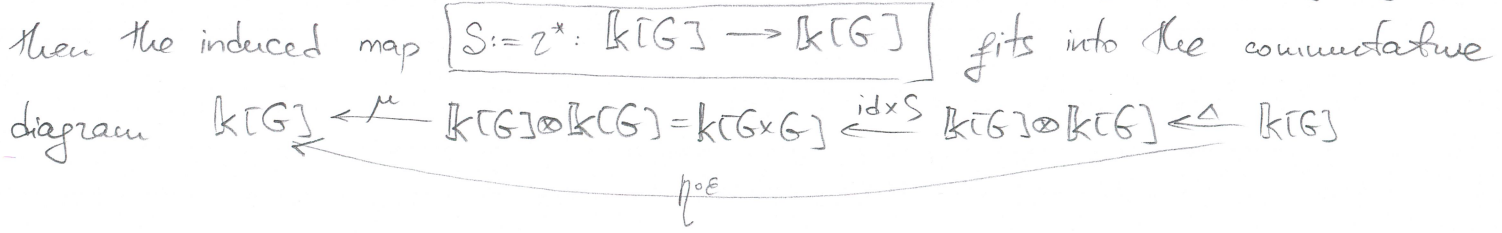 then the induced map S:=τ*: 𝕜[G] → 𝕜[G] fits into the commutative
diagram 𝕜[G] ←μ 𝕜[G]⊗𝕜[G] = 𝕜[G×G] ←id×S 𝕜[G]⊗𝕜[G] ←Δ 𝕜[G]
η∘ε